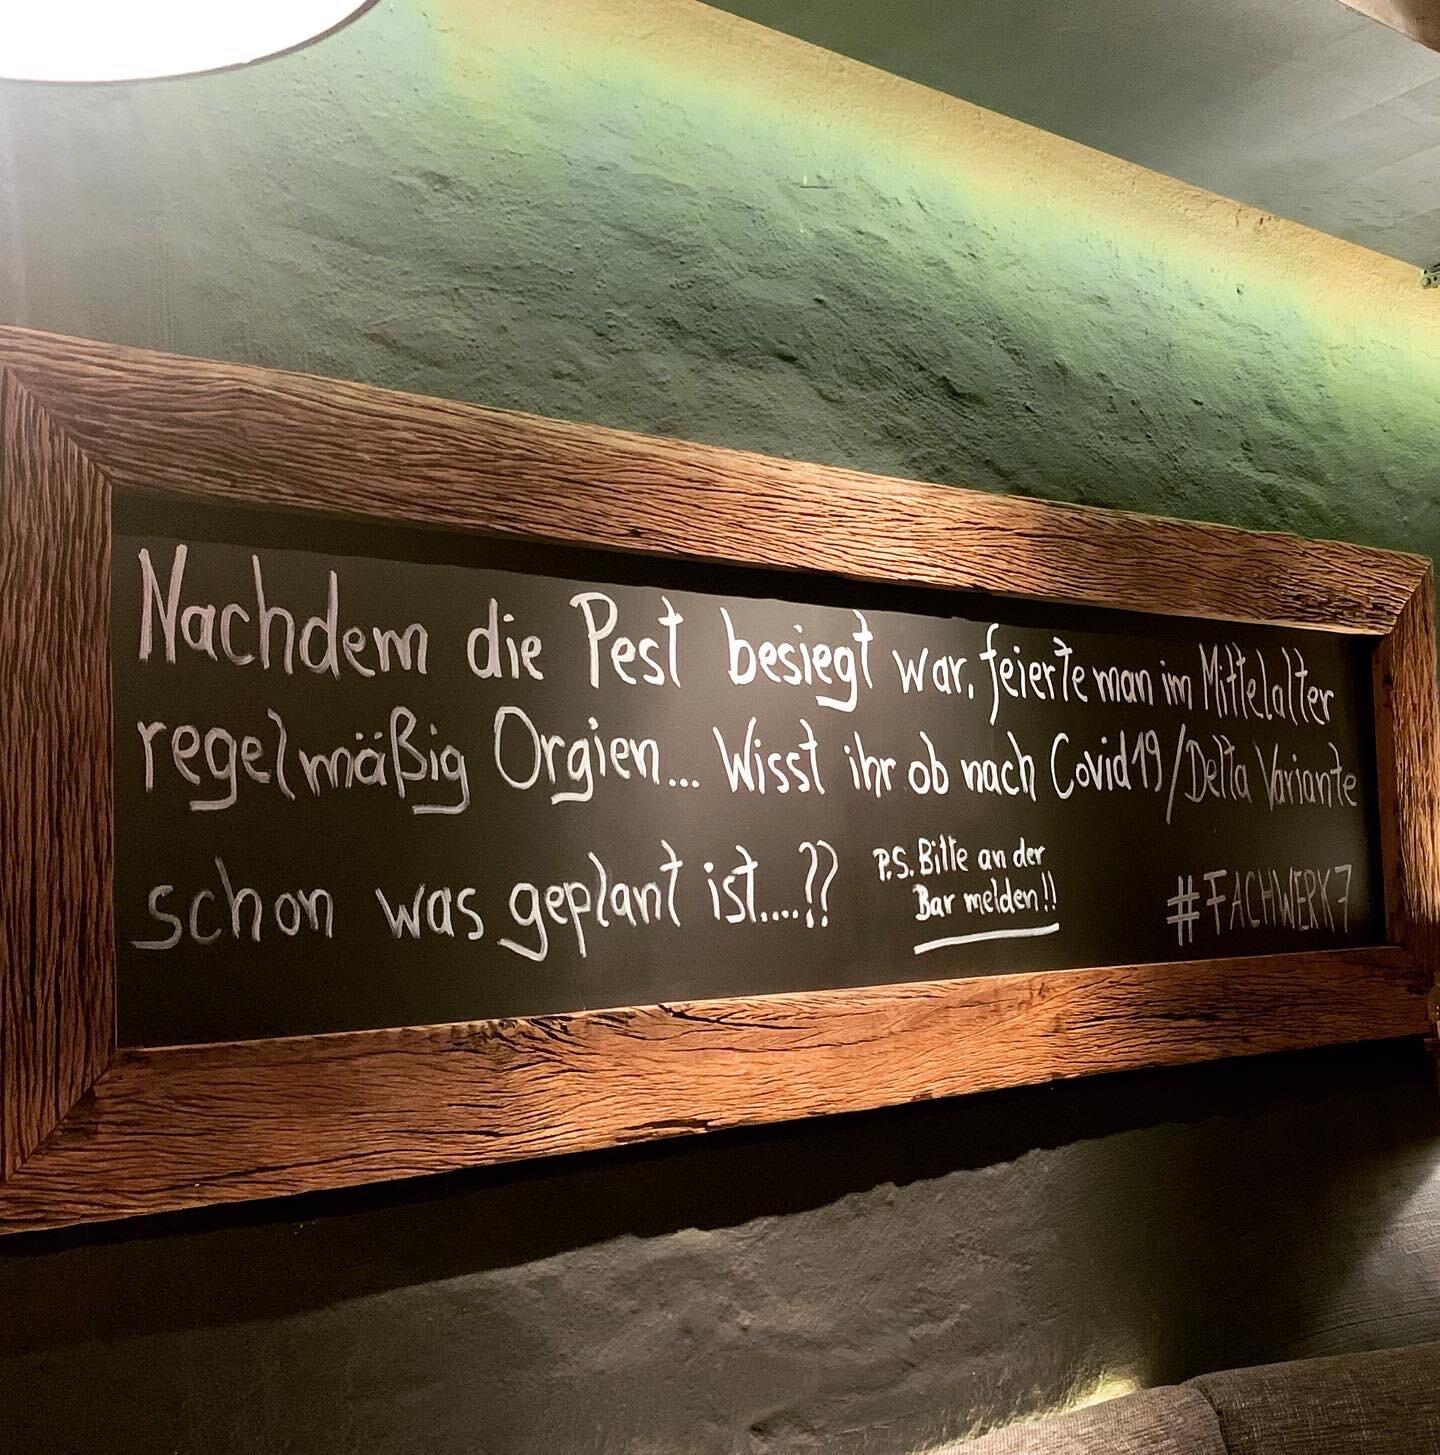 Nachdem die Pest besiegt war, feierte man im Mittelalter
regelmäßig Orgien... Wisst ihr ob nach Covid19/Delta Variante
schon was geplant ist....??
P.S. Bitte an der
Bar melden!!
#FACHWERK7